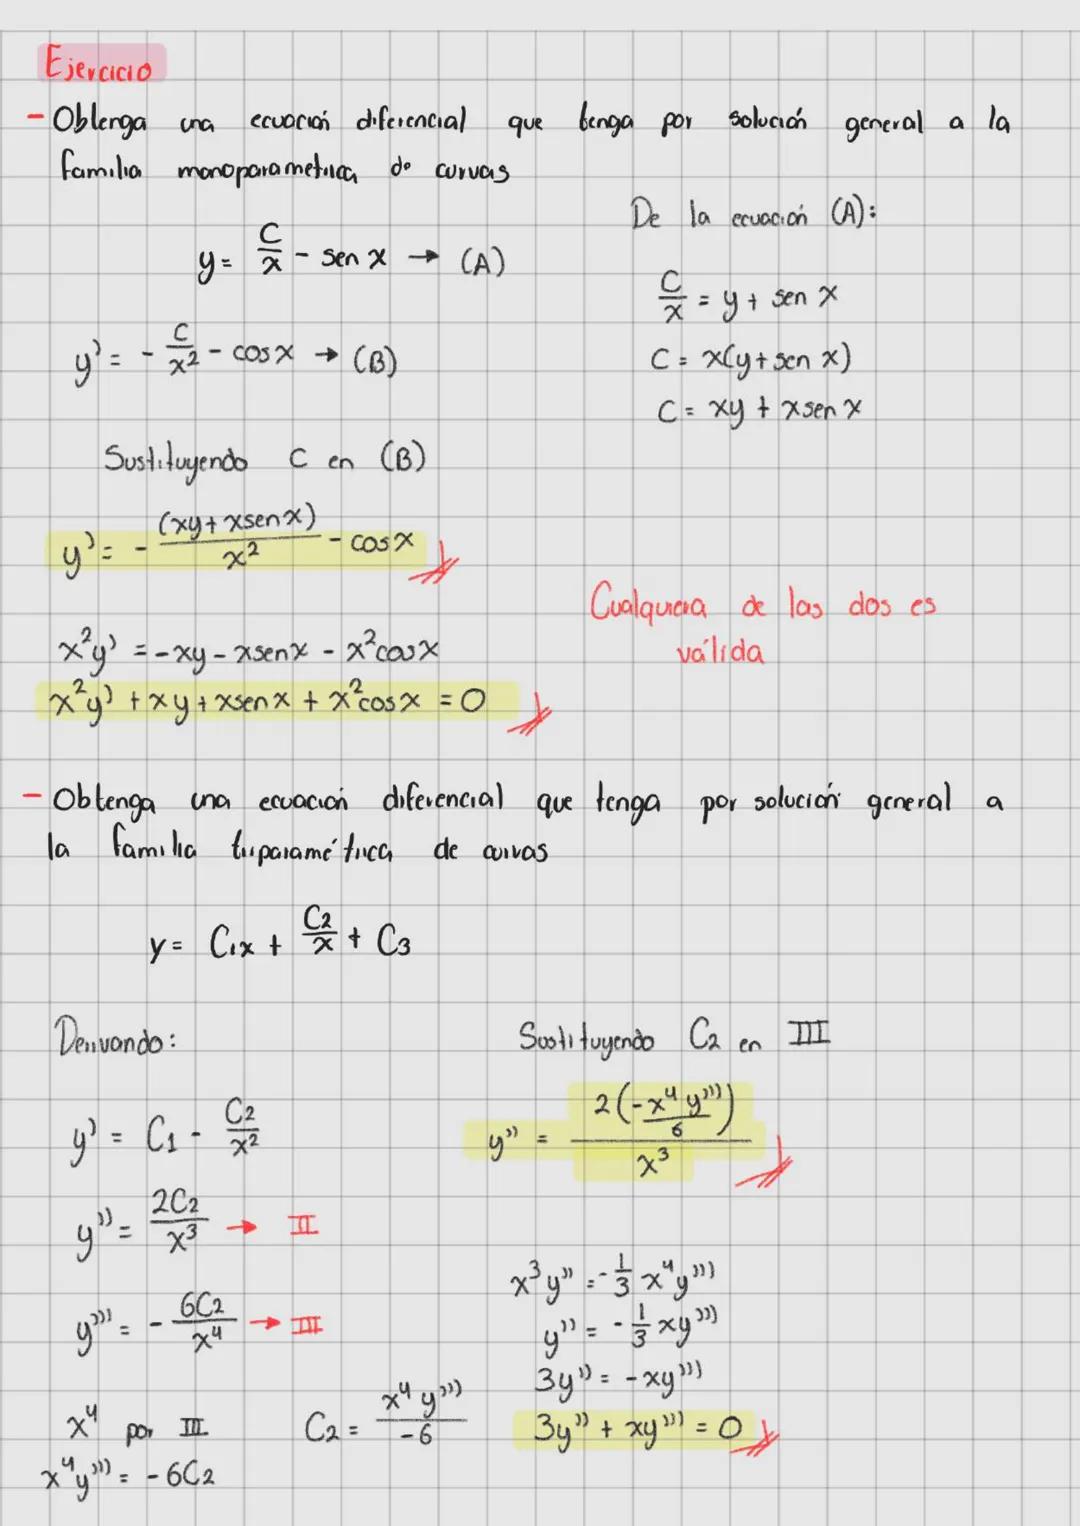 Ejercicio
- Obtenga una ecuación diferencial que tenga por solución general a la
familia monoparametrica de curvas
y = C/x - sen x → (A)
y' = - C/x² - cos x → (B)
De la ecuación (A):
C/x = y + sen x
C = x(y + sen x)
C = xy + x sen x
Sustituyendo C en (B)
y' = - (xy + x sen x)/x² - cos x
x²y' = - xy - x sen x - x² cos x
x²y' + xy + x sen x + x² cos x = 0
Cualquiera de las dos es
válida
- Obtenga una ecuación diferencial que tenga por solución general a
la familia triparamétrica de curvas
y = C₁x + C₂/x + C₃
Derivando:
y' = C₁ - C₂/x²
y'' = 2C₂/x³ → II
y''' = - 6C₂/x⁴ → III
x⁴ por III
x⁴y''' = - 6C₂
C₂ = x⁴y'''/-6
Sustituyendo C₂ en III
y'' = 2(-x⁴y'''/6)/x³
x³y'' = - 1/3 x⁴y'''
y'' = - 1/3 xy'''
3y'' = - xy'''
3y'' + xy''' = 0